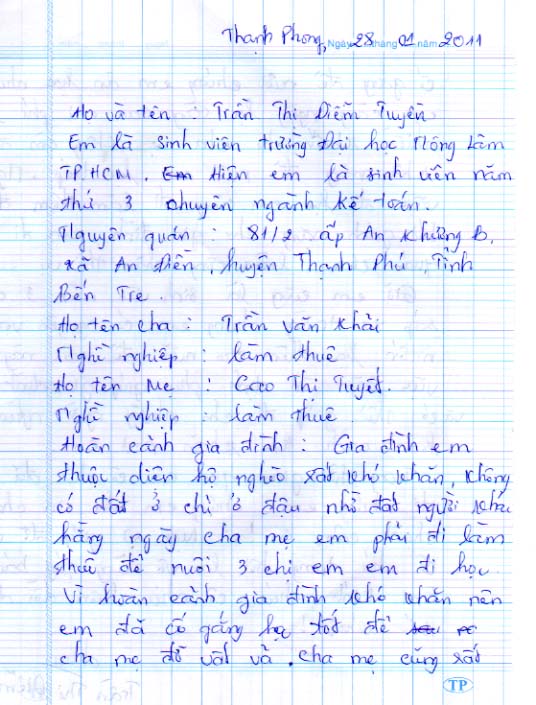 Thạnh Phong, Ngày 28 tháng 01 năm 2011
Họ và tên : Trần Thị Diễm Tuyên
Em là sinh viên trường Đại học Nông Lâm
TP.HCM. Em Hiện em là sinh viên năm
thứ 3 chuyên ngành kế toán.
Nguyên quán : 81/2 ấp An Khương B,
xã An Điền, huyện Thạnh Phú, Tỉnh
Bến Tre.
Họ tên cha : Trần Văn Khải
Nghề nghiệp : làm thuê
Họ tên Mẹ : Cao Thị Tuyết.
Nghề nghiệp : làm thuê
Hoàn cảnh gia đình : Gia đình em
thuộc diện hộ nghèo rất khó khăn, không
có đất ở chỉ ở đậu nhờ đất người khác
hằng ngày cha mẹ em phải đi làm
thuê để nuôi 3 chị em em đi học.
Vì hoàn cảnh gia đình khó khăn nên
em đã cố gắng học tốt để
cha mẹ đỡ vất vả, cha mẹ cũng rất
TP